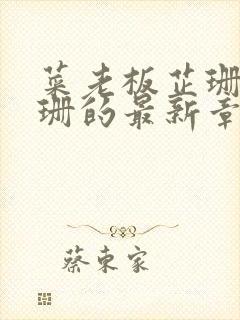 菜老板芷珊
珊的最新章
蔡东家